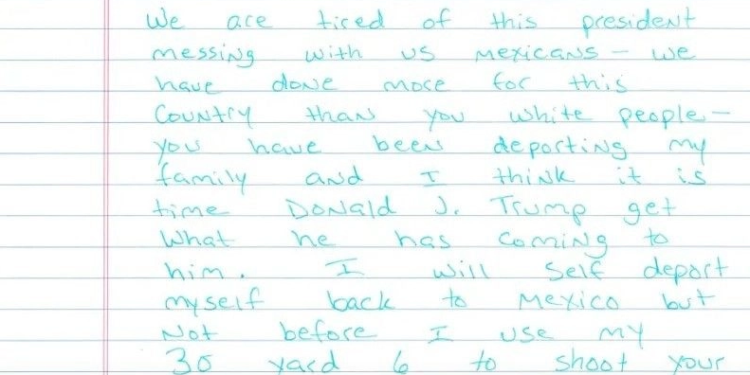 We are tired of this president
messing with us mexicans – we
have done more for this
Country than you white people –
you have been deporting my
family and I think it is
time Donald J. Trump get
What he has coming to
him. I will self deport
myself back to Mexico but
Not before I use my
30 yard 6 to shoot your